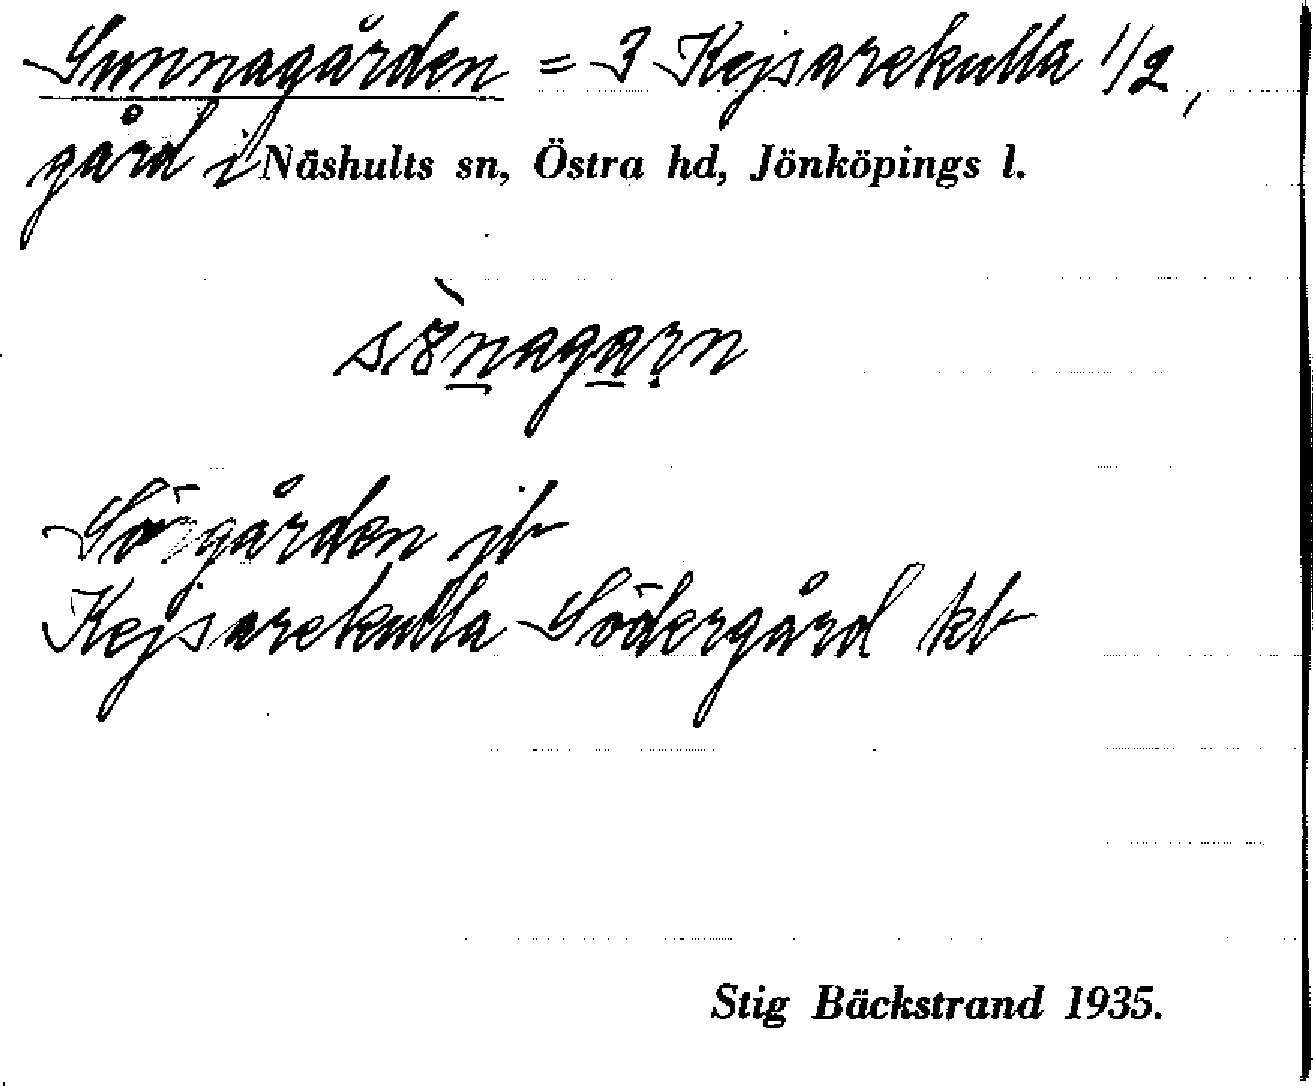 Sunnagården = 3 Kejsarekulla 1/2,
gård i Näshults sn, Östra hd, Jönköpings l.
Sörgården jb
Kejsarekulla Södergård kb
Stig Bäckstrand 1935.